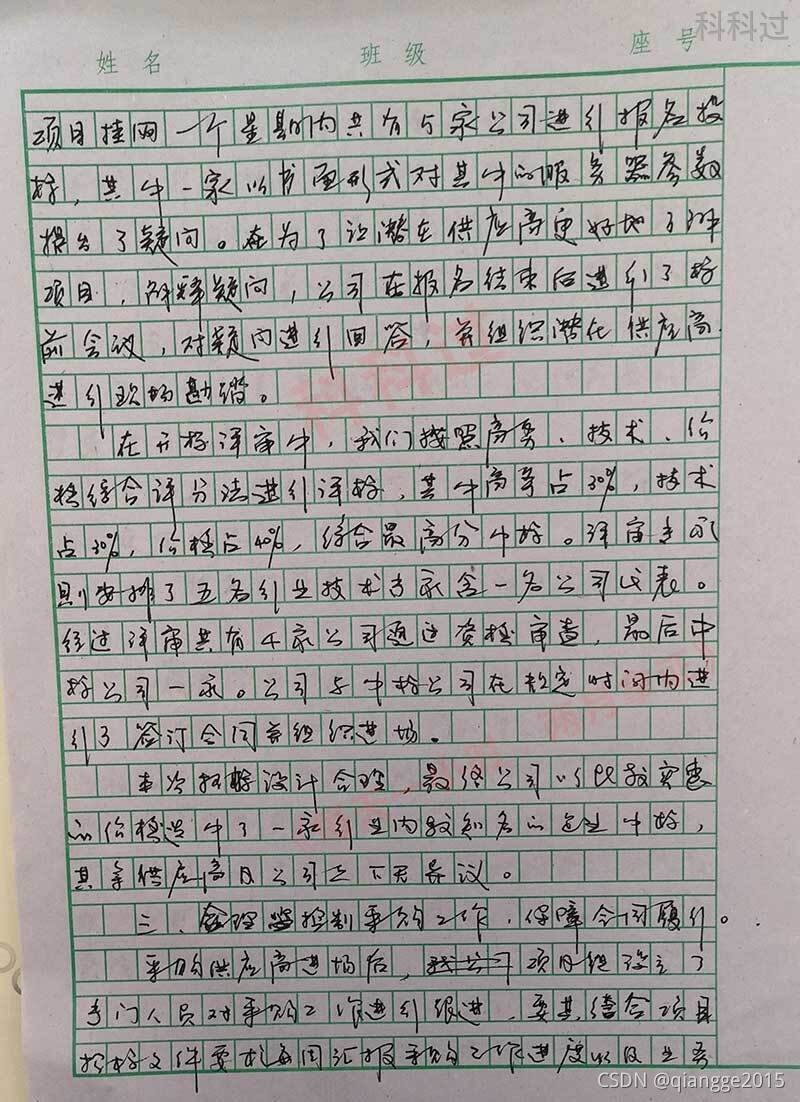 科科过
姓名 班级 座号
项目挂网一个星期内共有5家公司进行报名投
标,其中一家以书面形式对其中的服务器参数
提出了疑问。在为了让潜在供应商更好地了解
项目,解释疑问,公司在报名结束后进行了标
前会议,对疑问进行回答,并组织潜在供应商
进行现场勘踏。
在开标评审中,我们按照商务、技术、价
格综合评分法进行评标,其中商务占30%,技术
占30%,价格占40%,综合最高分中标。评审专家
则安排了五名行业技术专家含一名公司代表。
经过评审共有4家公司通过资格审查,最后中
标公司一家。公司与中标公司在规定时间内进
行了签订合同并组织进场。
本次招标设计合理,最终公司以比较实惠
的价格选中了一家行业内较知名的企业中标,
其余供应商及公司上下无异议。
三、合理控制采购工作,保障合同履行。
采购供应商进场后,项目组设立了
专门人员对采购工作进行跟进,要其结合项目
招标文件要求每周汇报采购工作进度以及业务
CSDN @qiangge2015